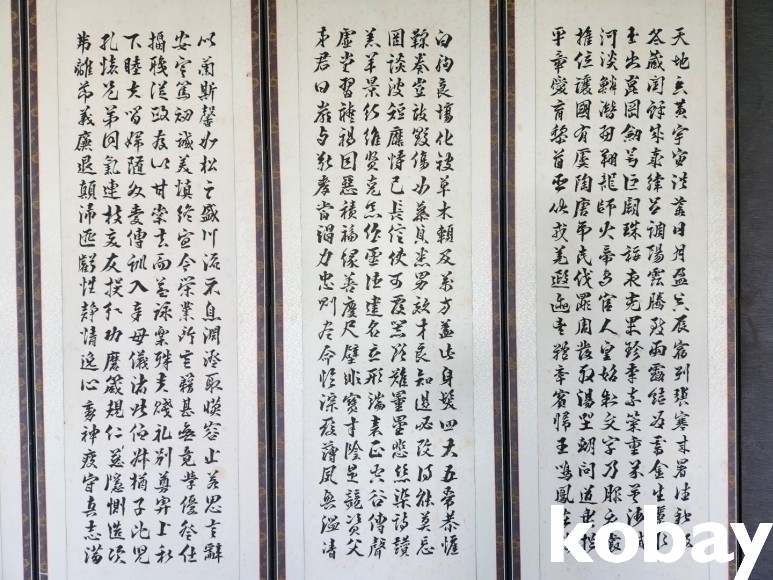 天地玄黃宇宙洪荒日月盈昃辰宿列張寒來暑往秋收
冬藏閏餘成歲律呂調陽雲騰致雨露結爲霜金生麗水
玉出崑岡劍號巨闕珠稱夜光果珍李柰菜重芥薑海鹹
河淡鱗潛羽翔龍師火帝鳥官人皇始制文字乃服衣裳
推位讓國有虞陶唐弔民伐罪周發殷湯坐朝問道垂拱
平章愛育黎首臣伏戎羌遐邇壹體率賓歸王鳴鳳在
白駒食場化被草木賴及萬方蓋此身髮四大五常恭惟
鞠養豈敢毀傷女慕貞烈男效才良知過必改得能莫忘
罔談彼短靡恃己長信使可覆器欲難量墨悲絲染詩讚
羔羊景行維賢克念作聖德建名立形端表正空谷傳聲
虛堂習聽禍因惡積福緣善慶尺璧非寶寸陰是競資父
事君曰嚴與敬孝當竭力忠則盡命臨深履薄夙興溫凊
似蘭斯馨如松之盛川流不息淵澄取暎容止若思言辭
安定篤初誠美慎終宜令榮業所基籍甚無竟學優登仕
攝職從政存以甘棠去而益詠樂殊貴賤礼別尊卑上和
下睦夫唱婦隨外受傅訓入奉母儀諸姑伯叔猶子比兒
孔懷兄弟同氣連枝交友投分切磨箴規仁慈隱惻造次
弗離節義廉退顛沛匪虧性靜情逸心動神疲守真志滿
kobay